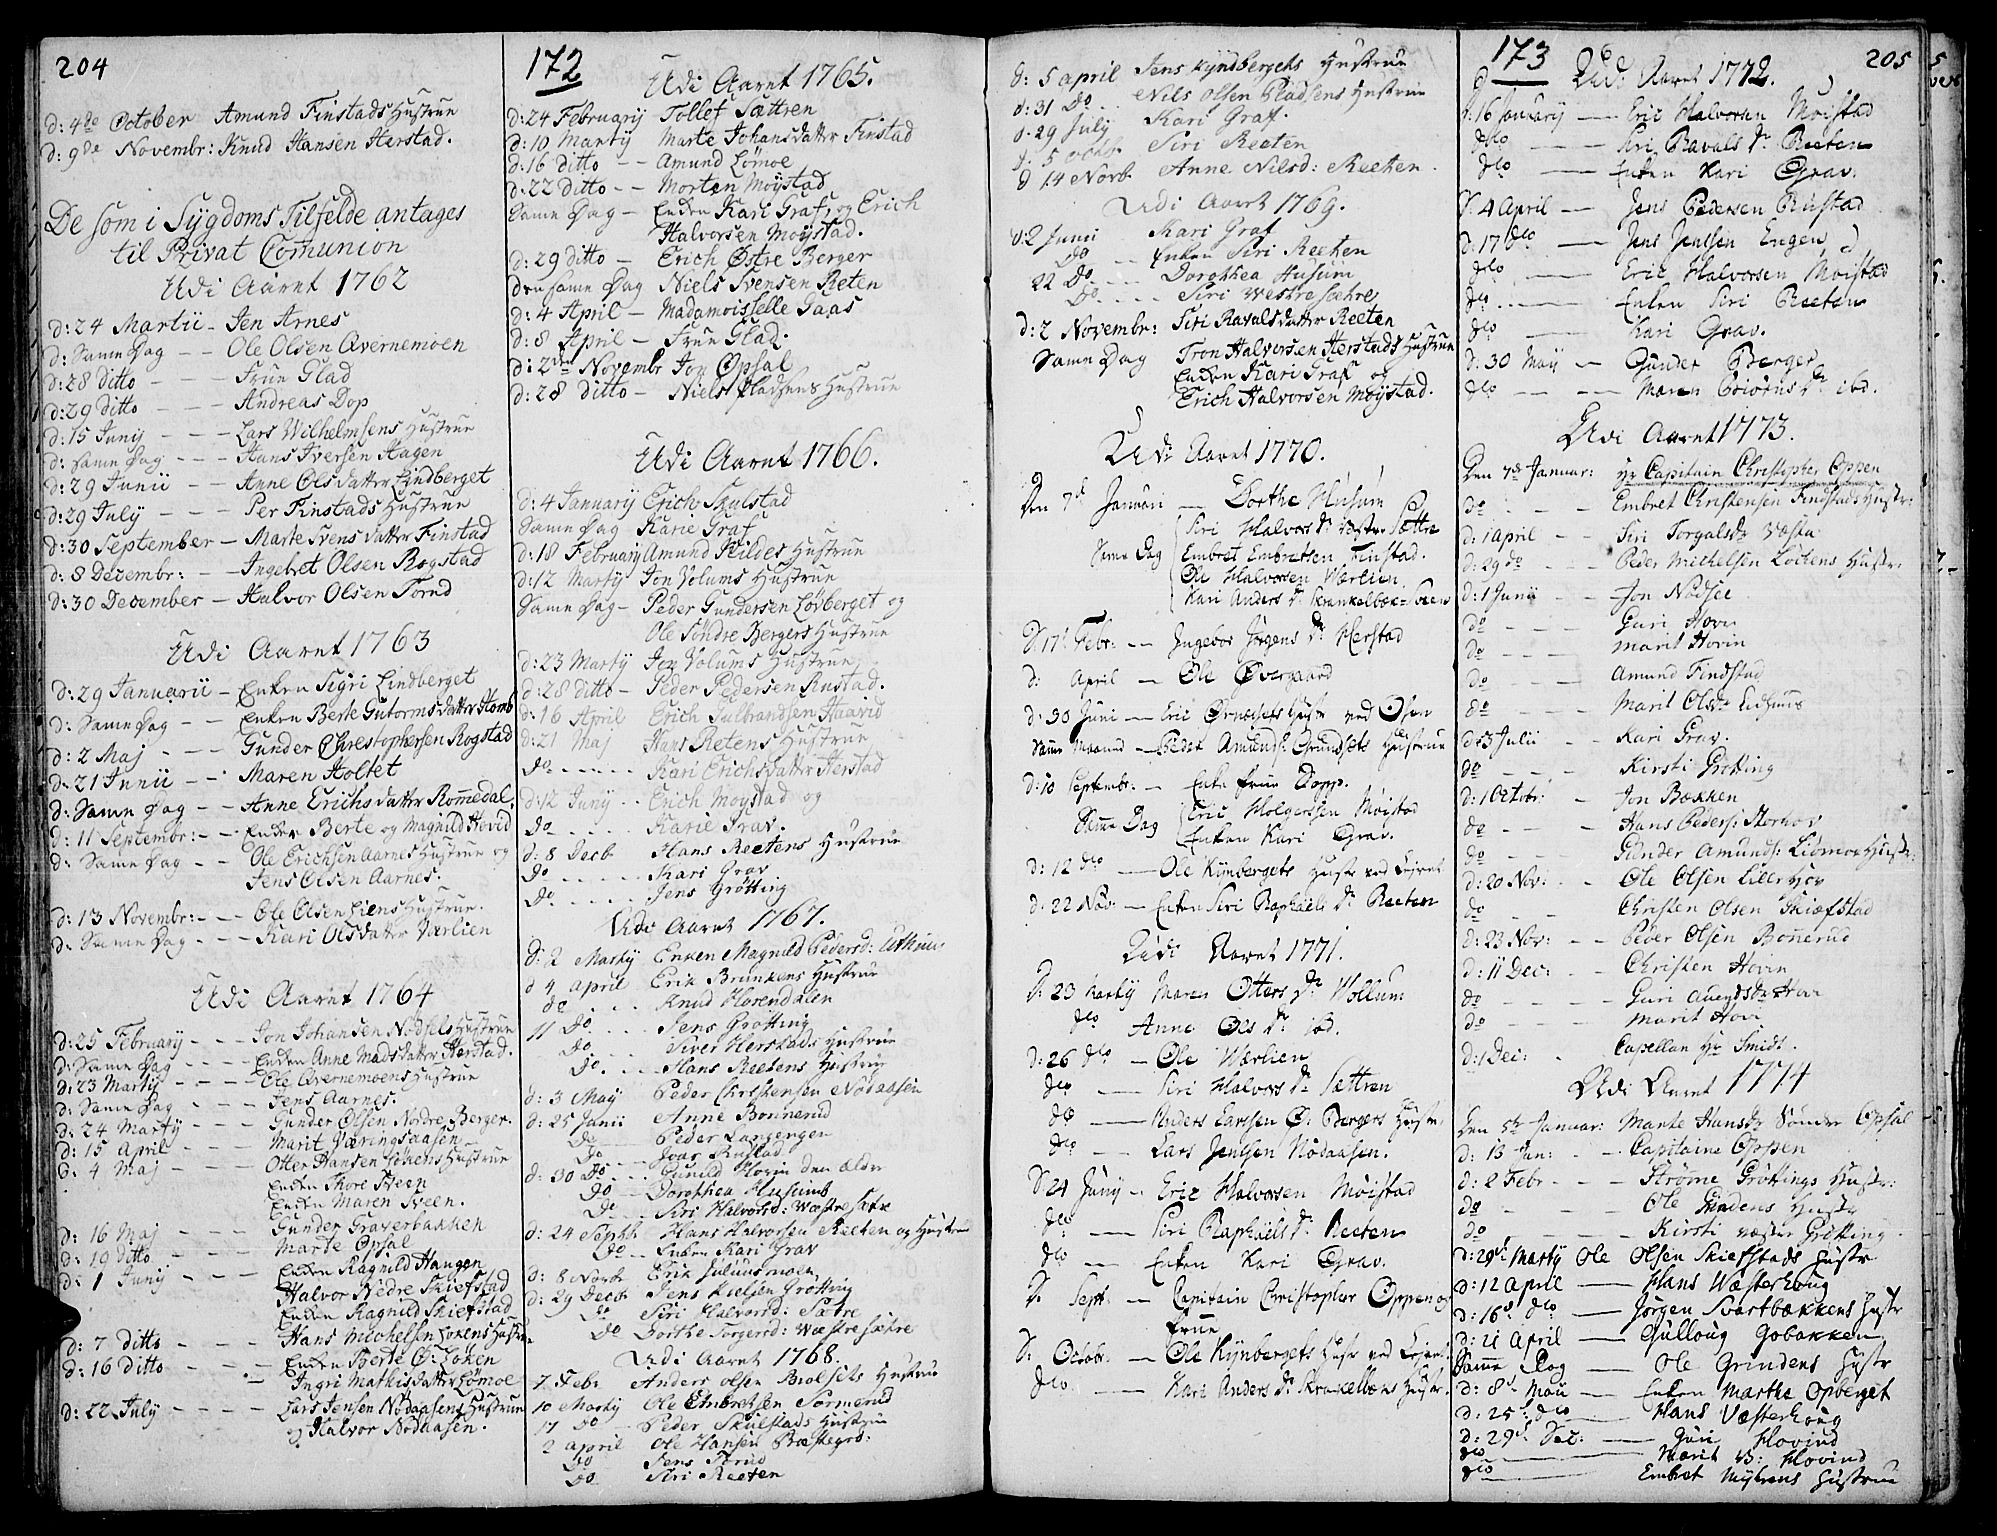 204
d: 4de October Amund Finstads Hustrue
d: 9de Novembr: Knud Hansen Herstad.
De som i Sÿgdoms Tilfelde antages
til Privat Com̄union
Udi Aaret 1762
d: 24 Martii - Jen Arnes
d: Samme Dag - - Ole Olsen Qvernemoen
d: 28 ditto - - - Frue Glad
d: 29 ditto - - - Andreas Dop
d: 15 Junij - - - Lars Wilhelmsens Hustrue
d: Samme Dag - - - Hans Iversen Hagen
d: 29 Junii - - Anne Olsdatter Lindberget
d: 29 July - - - Per Finstads Hustrue
d: 30 September - Marte Svensdatter Finstad
d: 8 Decembr: - - Ingebret Olsen Rogstad
d: 30 December - Halvor Olsen Torud
Udi Aaret 1763
d: 29 Januarii - Enken Sigri Lindberget
d: Samme Dag - - Enken Berte Gutormsdatter Homb
d: 2 Maj - - - Gunder Christophersen Rogstad
d: 21 Junii - - Maren Holtet
d: Samme Dag - - Anne Erichsdatter Rom̄edal.
d: 11 Septembr: - - Enken Berte og Magnild Hovid
d: Samme Dag - - Ole Erichsen Aarnes Hustrue og
Jens Olsen Aarnes.
d: 13 Novembr: - - - Ole Olsen Liens Hustrue.
d: Samme Dag - - - Kari Olsdatter Værlien
Udi Aaret 1764
d: 25 February - - - Jon Johansen Nodsets Hustrue
d: Samme Dag - - - Enken Anne Madsdatter Herstad.
d: 23 Martÿ - - - - Ole Qvernemoens Hustrue
d: Samme Dag - - - Jens Aarnes.
d: 24 Martÿ - - - Gunder Olsen Nordre Berger.
d: 15 April - - - Marit Væringsaasen
d: 4 Maj - - - Otter Hansen Hustrue
Enken Thore Sveen
Enken Maren Sveen.
d: 16 Maj - - - Gunder Graverbakken
d: 19 ditto - - - Marte Opsal
d: 1 Junij - - - Enken Ragnild Haugen
Halvor Nedre Skiefstad
Enken Ragnild Skiefstad
d: 7 ditto - - - Hans Michelsen Løkens Hustrue
d: 16 ditto - - - Enken Berte Ø: Løken
Ingri Mathisdatter Lømoe
d: 22 July - - - - Lars Jensen Nodaasens Hustrue
og Halvor Nodaasen.
172
Udi Aaret 1765.
d: 24 Februarij Tollef Sættren
d: 10 Martÿ Marte Johansdatter Finstad
d: 16 ditto - - Amund Lømoe
d: 22 ditto - - Morten Moÿstad
Samme Dag - Enken Kari Graf, og Erich
Halvorsen Moÿstad.
d: 29 ditto - Erich Østre Berger
den Samme Dag Niels Svensen Reten
d: 4 April - Madamoisselle Gaas
d: 8 April - Frue Glad.
d: 2den Novembr Jon Opsal
d: 28 ditto - Niels Pladsens Hustrue
Udi Aaret 1766.
d: 4 Januarij Erich Skulstad
Samme Dag Karie Graf
d: 18 February Amund Kildes Hustrue
d: 12 Martÿ Jon Volums Hustrue
Samme Dag - Peder Gundersen Løvberget og
Ole Søndre Bergers Hustrue
d: 23 Martÿ Jon Volums Hustrue
d: 28 ditto - Peder Pedersen Rustad.
d: 16 April Erich Gulbrandsen Haavid
d: 21 Maj Hans Retens Hustrue
do - - - - - Kari Erichsdatter Herstad
d: 12 Junÿ - - Erich Moystad og
do . . . . . Karie Grav.
d: 8 Decb: Hans Reetens Hustrue
do . . . . . Kari Grav
do . . . . . Jens Grøtting
Udi Aaret 1767.
d: 2 Martÿ Enken Magnild Pedersd:
d 4 april Erik Brunkens Hustrue
do . . . Knud Horendalen
11 Do . . . . Jens Grøtting
Do . . . . Siver Herstads Hustrue
Do . . . . Hans Reetens Hustrue
d: 3 Maÿ Peder Christensen Nodaasen
d: 25 Junii Anne Bonnerud
Do - - - Peder Langengen
Do . . . Ivar Rustad
d: 30 Do . . . Gunild Hovin den ældre
Do - Dorothea Husums
Do - Siri Halvorsd: Wæstresætre
d: 24 Septb: Hans Halvorsen Reeten og Hustrue
Do - Enken Kari Grav
d: 8 Novb: Erik Julusmoen
d: 29 Decb: Jens Nielsen Grøtting
do Siri Halvorsd: Sætre
do Dorthe Torgersd: Wæstresætre
Udi Aaret 1768.
7 Febr: Anders Olsen Biølsets Hustrue
10 Martÿ Ole Embretsen Sørmerud
17 Do - Peder Skulstads Hustrue
2 april Ole Hansen Bræstegrd:
Do Jens Torud
Do Siri Reeten
d: 5 april Jens Kÿndbergets Hustrue
d: 31 Do . . Nils Olsen Pladsens Hustrue
d. 29 July Kari Graf.
d. 5 octbr. Siri Reeten
d 14 Novb. Anne Nilsd: Reeten.
Udi Aaret 1769.
d: 2 Junii Kari Graf
Do - - Enken Siri Reeten
22 Do . . . . Dorothea Husum
Do . . . . Siri Westre Sætre
d: 2 Novembr: Siri Ravalsdatter Reeten
Samme Dag Tron Halvorsen Herstads Hustrue
Enken Kari Graf og
Erich Halvorsen Moÿstad.
Udi Aaret 1770.
Den 7de Januari - Dorthe Husum
Siri Halvors dr. Vester Sættre
Samme Dag Embret Embretsen Finstad.
Ole Halvorsen Værlien
Kari Anders dr.
d. 17 Febr: - - Ingebor Jørgens dr. Herstad
d: April - Ole Øvergaard
d: 30 Juni - - Eric Ørnæsets Hustr ved Osen
Samme Maaned - Peder Amunds: Grundsets Hustrue
d: 10 Septembr. - Enke Frue Dopp.
Samme Dag Eric Holgerssen Møistad
Enken Kari Grav.
d: 12 dto - Ole Kÿnbergets Hustr ved Lejret
d. 22 Nov. - Enken Siri Raphaels dr. Reeten
Udi Aaret 1771.
d. 23 Martÿ Maren Otters dr. Wollum
dto Anne Ols dr. ibd.
d: 26 dto - Ole Værlien
dto - Siri Halvors dr. Sættren
dto - Anders Larssen Ø. Bergers Hustr.
dto - Lars Jenssen Nodaasen.
d 24 Junÿ - Eric Halvorsen Møistad
dto - Siri Raphaëls dr. Reeten
dto - Enken Kari Grav.
d. Sept. - Capitain Christopher Oppen og
Frue
d. Octobr. - Ole Kÿnbergets Hustr ved Lejret
dto - Kari Anders dr. Hustr.
173 205
Udi Aaret 1772.
d. 16 Januarij - Eric Halvorsen Møistad
dto - - Siri Ravals dr. Reeten
dto - - Enken Kari Grav.
d. 4 April - Jens Pedersen Rustad
d: 17 dto - Jens Jenssen Engen
dto - Eric Halvorsen Møistad
dto - Enken Siri Reeten
dto - Kari Grav.
d. 30 Maij - Gunder Berger
dto - - Maren Biørns dr. ibd.
Udi Aaret 1773.
Den 7de Januar: Hr Capitain Christopher Oppen
do - - - Embret Christensen Findstads Hustr:
d: 1 April - - Siri Torgalsdr Væsta
d: 29 do - - - Peder Michelsen Løckens Hustr:
d: 1 Junii - - Jon Nodset
do - - - Guri Hovin
do - - - Marit Hovin
do - - - Amund Findstad
do - - - Marit Olsdr
d: 3 Julii - - Kari Grav.
do - - - Kirsti Grøtting
d: 1 Octobr: - Jon Bækken
do - - - Hans Peders: Storhov
do - - - Gunder Amunds: Liømoe Hustr:
d: 20 Nov: - - Ole Olsen Lillehov
do - - Christen Olsen Skiæfstad
d: 23 Nov: - - Peder Olsen Bonnerud
d: 11 Dec: - - Christen Hovin
do - - - Guri Hovi
do - - - Marit Hovi
d: 1 Dec: - Capellan Hr Smidt.
Udi Aaret 1774
Den 5te Januar: Marte Hansdr Sønder Opsal
d: 13 Jan: - - Capitaine Oppen
d: 2 Febr - - - Strømme Grøttings Hustr:
do - - - Ole Grindens Hustr
do - - - Kirsti væster Grøtting.
d: 29de Martÿ Ole Olsen Skiefstads Hustr
d: 12 April - Hans Wæsterhoug
d: 16de dto - Jørgen Svartbækkens Hustr
d: 21 April - Gulloug Gobakken
Samme Dag - Ole Grindens Hustr
d: 8de Maii - Enken Marthe Opberget
d: 25de dto - Hans Væsterhoug
d: 29de Dec: - Guri Hovind
dto - Marit Hovind
dto - Embret Mÿhrens Hustrue